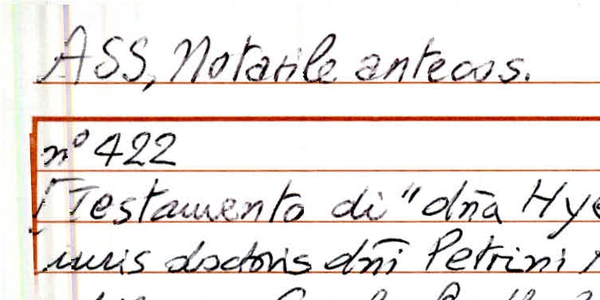 ASS, Notarile antecos.
n° 422
[Testamento di "dña Hye
iuris doctoris dñi Petrini